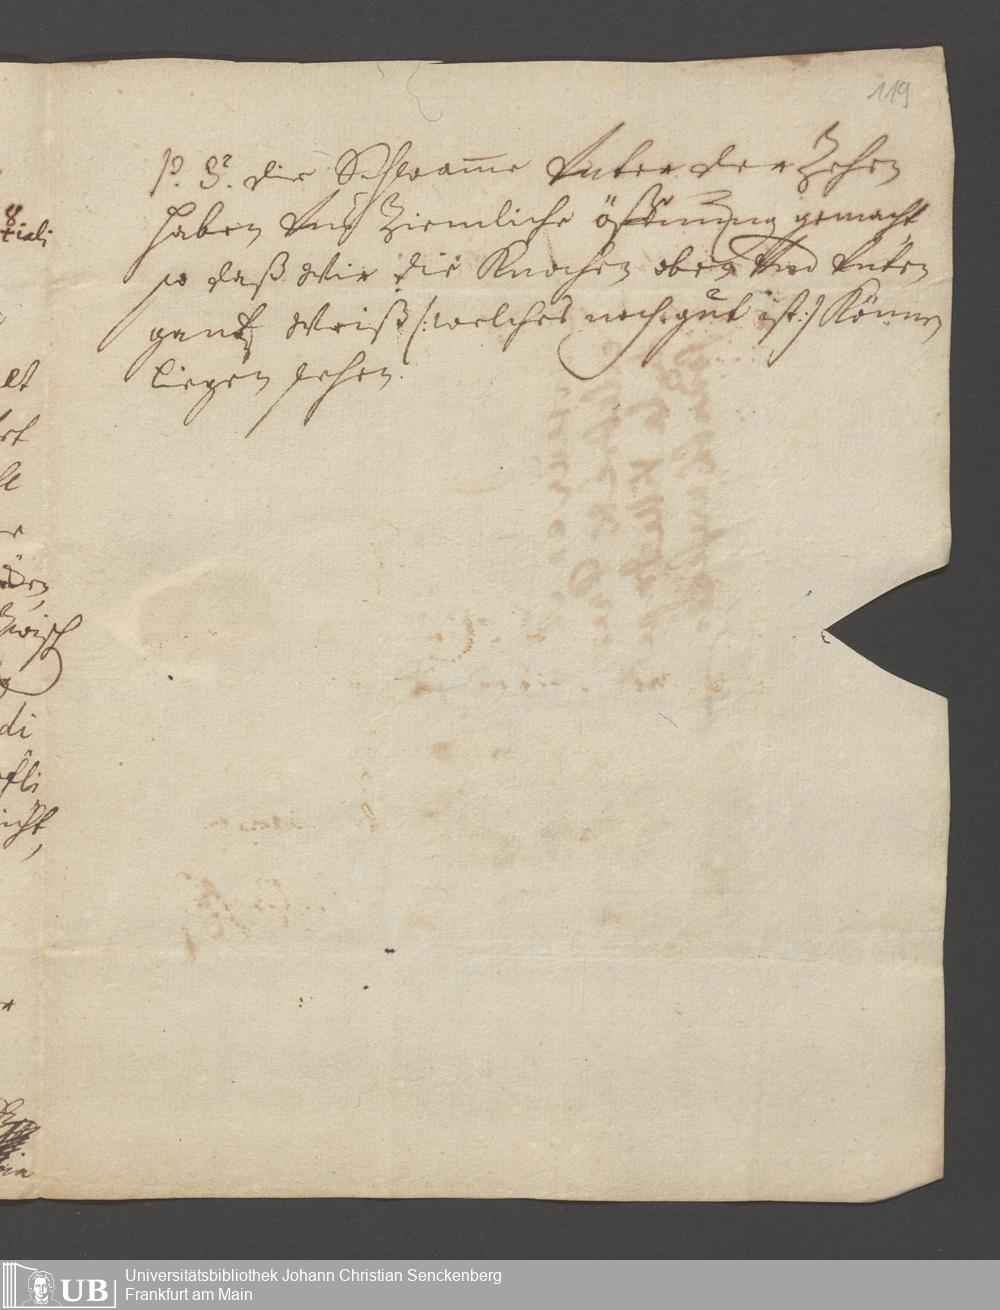 119
P. S. die Schwam̅e Unter der Zehen
haben Uns Ziemliche öffnung gemacht
so daß Wir die Knochen oben Und Unten
gantz Weiß /: welches noch gut ist :/ Können
liegen sehen.
tiali
di
Universitätsbibliothek Johann Christian Senckenberg
Frankfurt am Main
UB